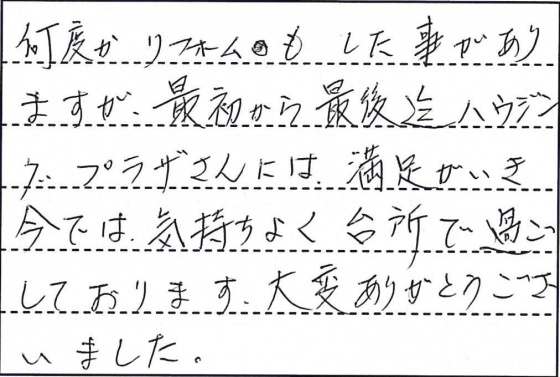 何度かリフォームもした事があり
ますが、最初から最後迄ハウジン
グプラザさんには、満足がいき
今では、気持ちよく台所で過ご
しております。大変ありがとうござ
いました。